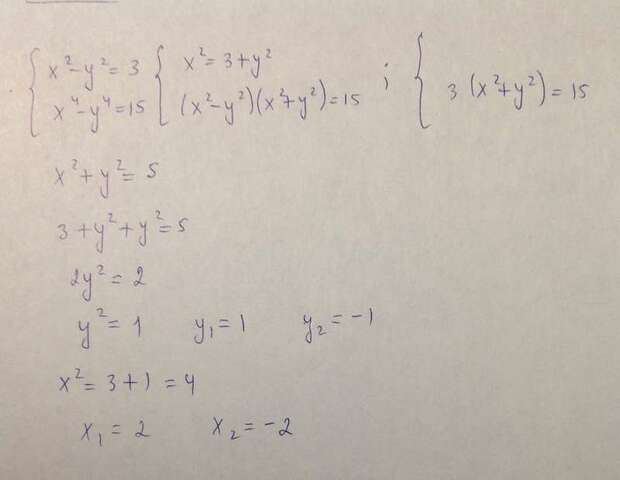 { x² - y² = 3 { x² = 3 + y²
x⁴ - y⁴ = 15 (x² - y²)(x² + y²) = 15 ; { 3 (x² + y²) = 15
x² + y² = 5
3 + y² + y² = 5
2y² = 2
y² = 1 y₁ = 1 y₂ = -1
x² = 3 + 1 = 4
x₁ = 2 x₂ = -2